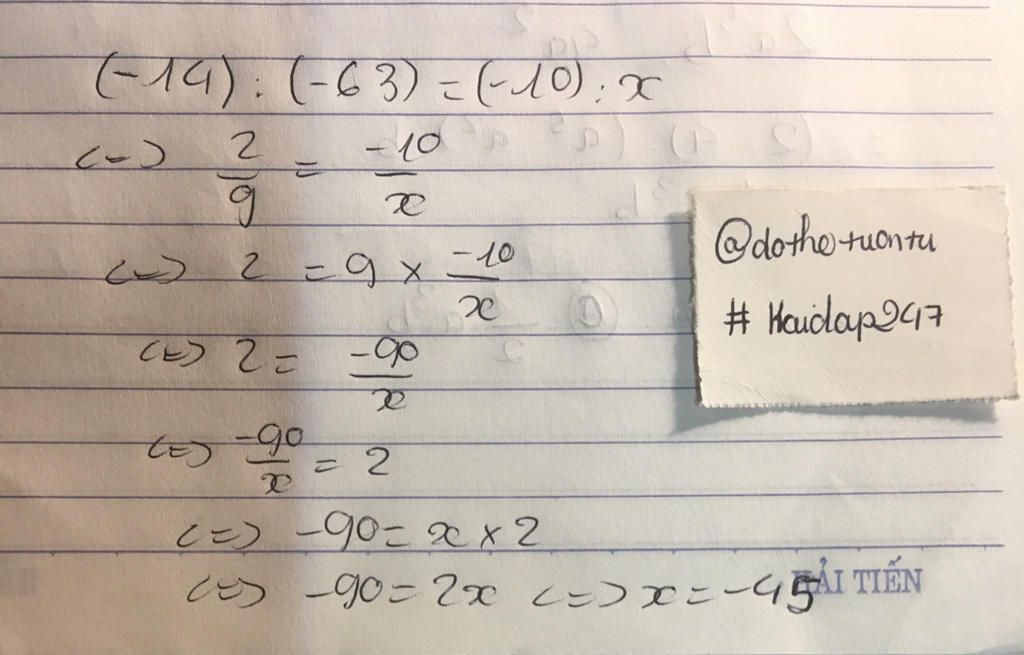 (-14) : (-63) = (-10) : x
<=> 2/9 = -10/x
<=> 2 = 9 × -10/x
<=> 2 = -90/x
<=> -90/x = 2
<=> -90 = x × 2
<=> -90 = 2x <=> x = -45
@dothotuontu
# Hoidap247
HẢI TIẾN